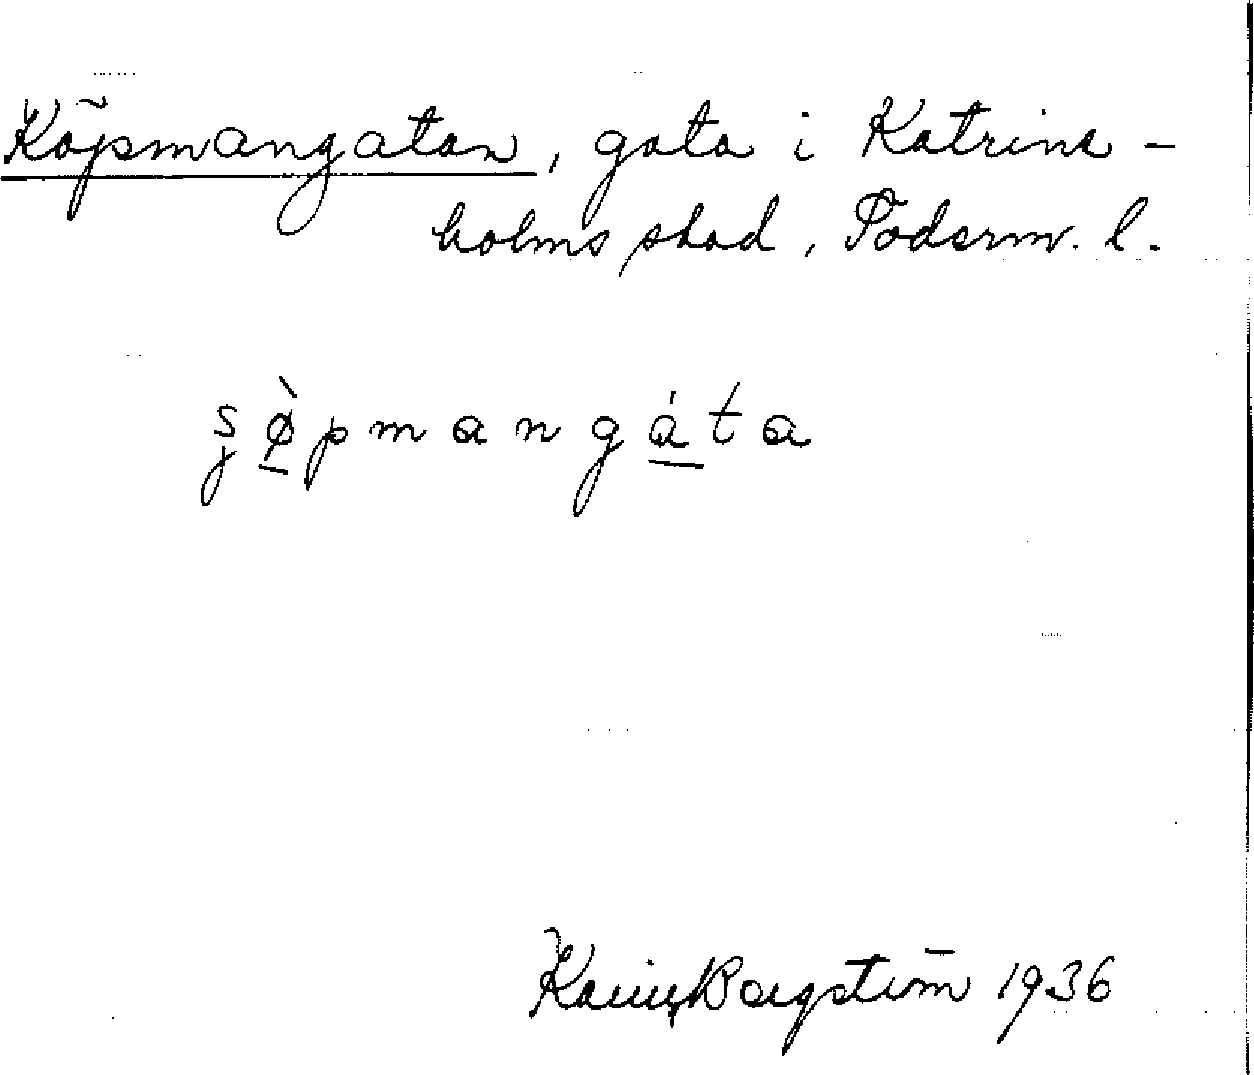 Köpmangatan, gata i Katrine-
holms stad, Söderm. l.
ʂø̀pmangáta
Karin Bergström 1936